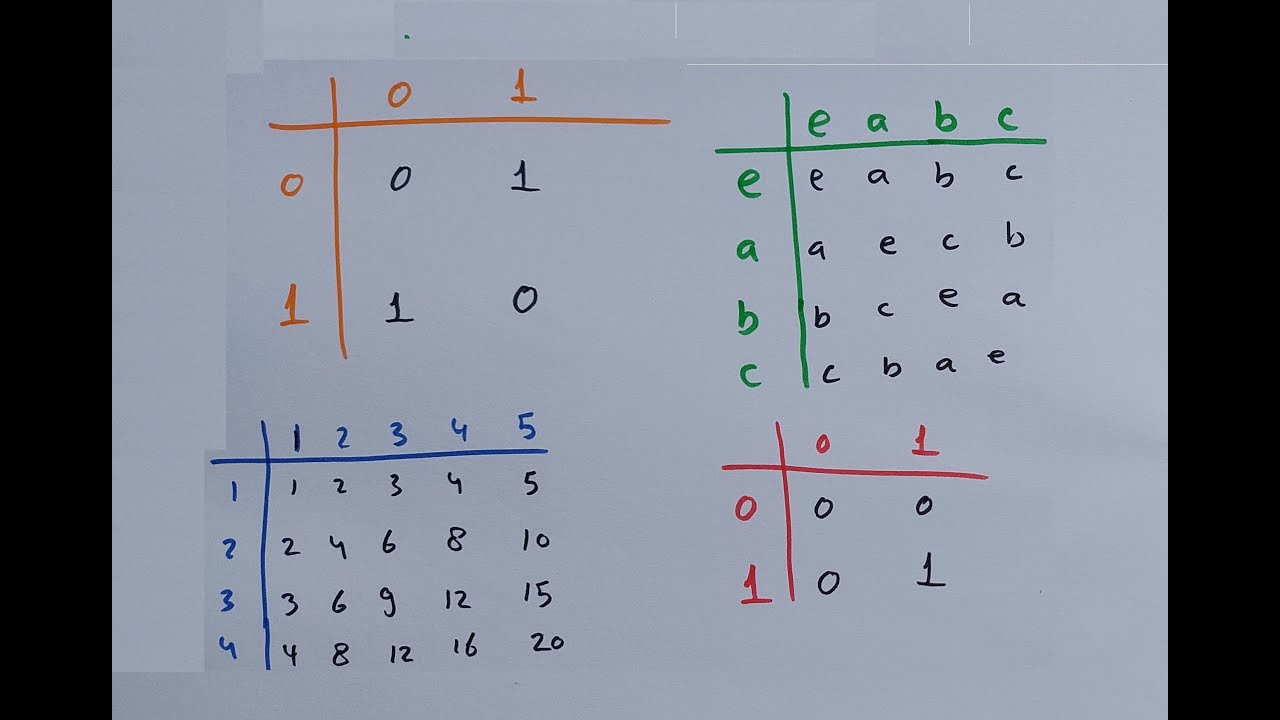 0 1
0 0 1
1 1 0
e a b c
e e a b c
a a e c b
b b c e a
c c b a e
1 2 3 4 5
1 1 2 3 4 5
2 2 4 6 8 10
3 3 6 9 12 15
4 4 8 12 16 20
0 1
0 0 0
1 0 1